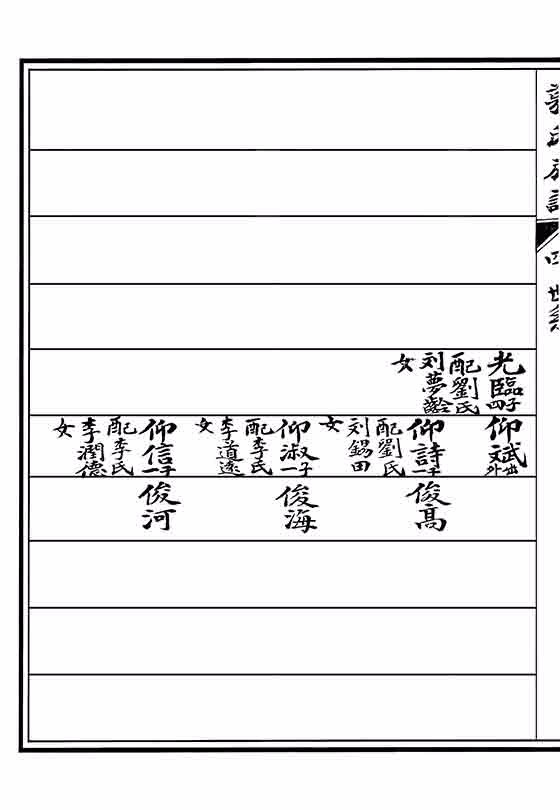 郭氏族譜
四世系
光臨四子
配劉氏
刘夢齡
女
仰斌出外
仰詩一子
配劉氏
刘錫田
女
仰淑一子
配李氏
李道遠
女
仰信一子
配李氏
李潤德
女
俊高
俊海
俊河